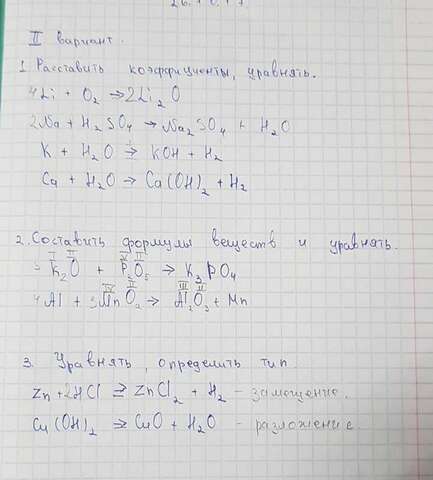 II вариант.
1. Расставить коэффициенты, уравнять.
4Li + O₂ → 2Li₂O
2Na + H₂SO₄ → Na₂SO₄ + H₂O
K + H₂O → KOH + H₂
Ca + H₂O → Ca(OH)₂ + H₂
2. Составить формулы веществ и уравнять.
I II V II
3 K₂O + P₂O₅ → K₃PO₄
IV II III II
4Al + 3MnO₂ → Al₂O₃ + Mn
3. Уравнять, определить тип.
Zn + 2HCl ⇄ ZnCl₂ + H₂ - замещение.
Cu(OH)₂ → CuO + H₂O - разложение